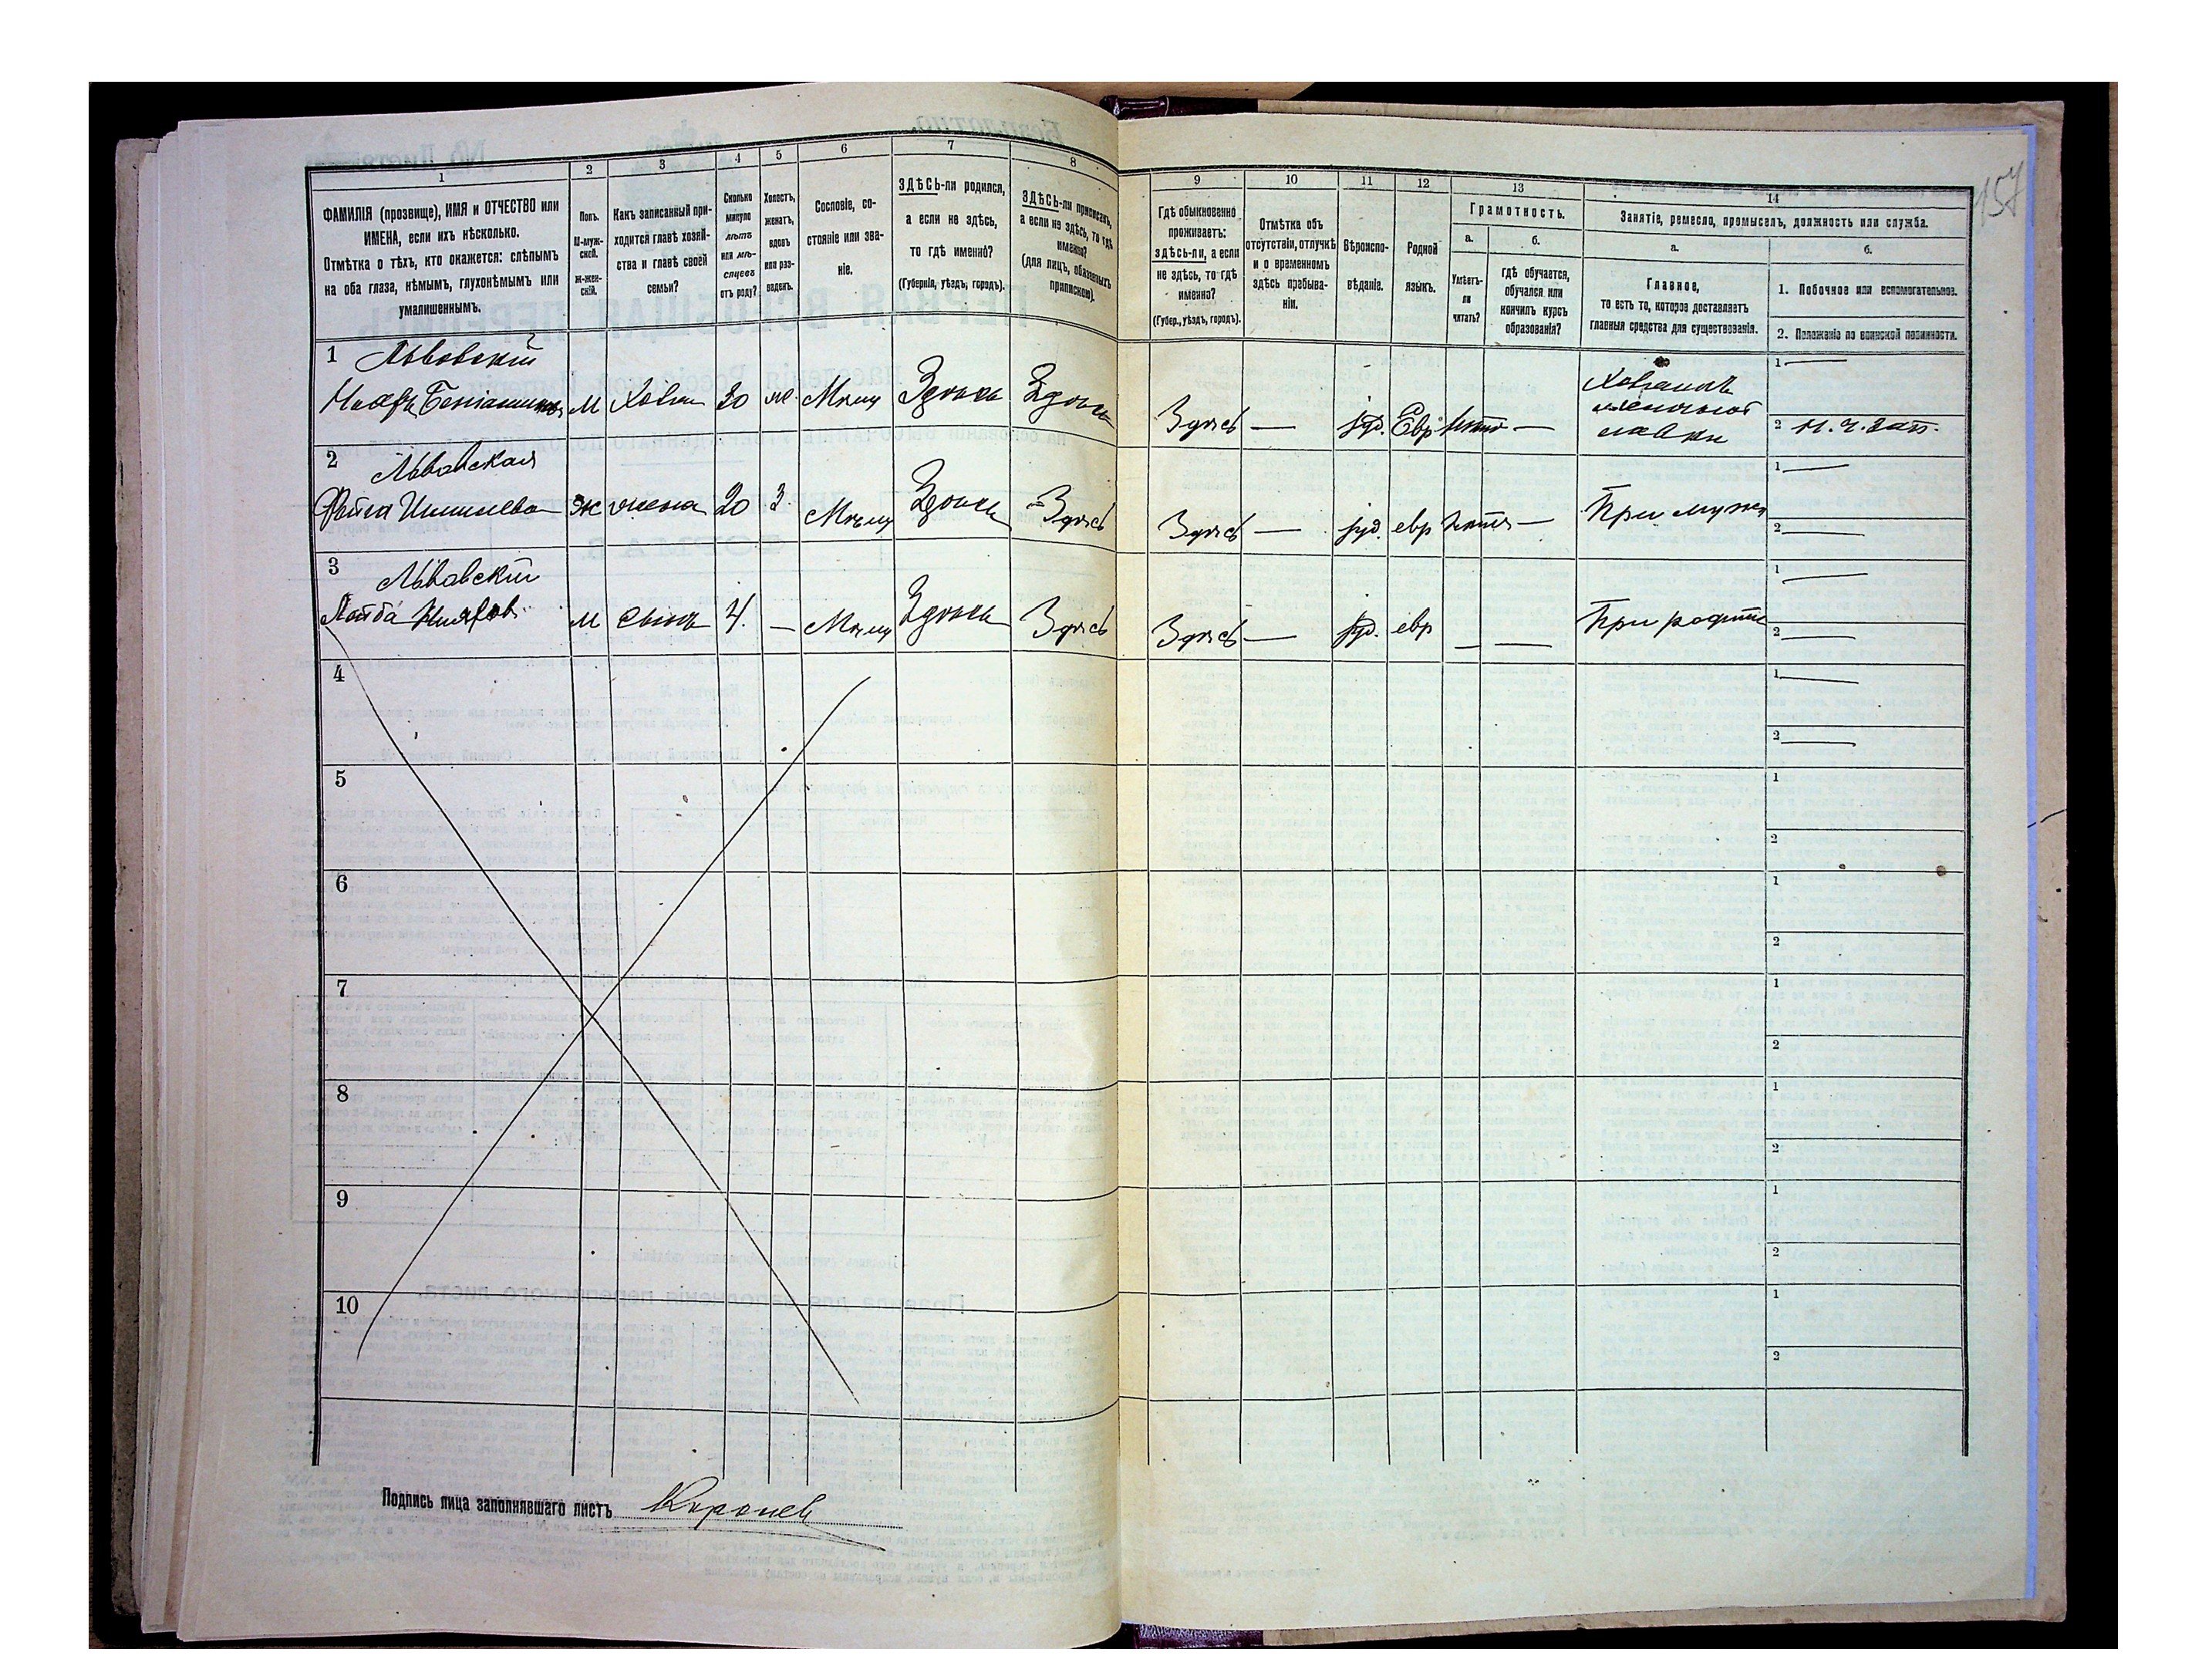 157
1 2 3 4 5 6 7 8 9 10 11 12 13 14
ФАМИЛІЯ (прозвище), ИМЯ и ОТЧЕСТВО или
ИМЕНА, если ихъ нѣсколько.
Отмѣтка о тѣхъ, кто окажется: слѣпымъ
на оба глаза, нѣмымъ, глухонѣмымъ или
умалишеннымъ.
Полъ.
М-муж-
ской.
Ж-жен-
скій.
Какъ записанный при-
ходится главѣ хозяй-
ства и главѣ своей
семьи?
Сколько
минуло
лѣтъ
или мѣ-
сяцевъ
отъ роду?
Холостъ,
женатъ,
вдовъ
или раз-
веденъ.
Сословіе, со-
стояніе или зва-
ніе.
ЗДѢСЬ-ли родился,
а если не здѣсь,
то гдѣ именно?
(Губернія, уѣздъ, городъ).
ЗДѢСЬ-ли приписанъ,
а если не здѣсь, то гдѣ
именно?
(для лицъ, обязанныхъ
припискою).
Гдѣ обыкновенно
проживаетъ:
здѣсь-ли, а если
не здѣсь, то гдѣ
именно?
(Губер., уѣздъ, городъ).
Отмѣтка объ
отсутствіи, отлучкѣ
и о временномъ
здѣсь пребыва-
ніи.
Вѣроиспо-
вѣданіе.
Родной
языкъ.
Грамотность.
а.
Умѣетъ-
ли
читать?
б.
гдѣ обучается,
обучался или
кончилъ курсъ
образованія?
Занятіе, ремесло, промыселъ, должность или служба.
а.
Главное,
то есть то, которое доставляетъ
главныя средства для существованія.
б.
1. Побочное или вспомогательное.
2. Положеніе по воинской повинности.
1 Львовскій
М Хозяи 30 ж. Мѣщ Здѣсь Здѣсь Здѣсь — іуд. Евр —
Хозяинъ
мелочной
лавки
1 —
2 н. ч. зап.
2 Львовская
Фейга ж жена 20 З. Мѣщ Здѣсь Здѣсь Здѣсь — іуд. евр — При мужѣ
1 —
2 —
3 Львовскій
Лейба М Сынъ 4. — Мѣщ Здѣсь Здѣсь Здѣсь — іуд. евр — — При родит
1 —
2 —
4
1 —
2 —
5
1
2
6
1
2
7
1
2
8
1
2
9
1
2
10
1
2
Подпись лица заполнявшаго листъ